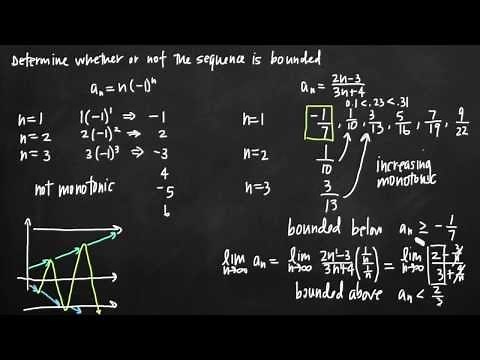 Determine whether or not the sequence is bounded
aₙ = n(-1)ⁿ
n=1 1(-1)¹ ⇒ -1
n=2 2(-1)² ⇒ 2
n=3 3(-1)³ ⇒ -3
4
-5
6
not monotonic
aₙ = 2n-3/3n+4
0.1 < .23 < .31
n=1 -1/7, 1/10, 3/13, 5/16, 7/19, 9/22
n=2 1/10
n=3 3/13
increasing
monotonic
bounded below aₙ ≥ -1/7
lim n→∞ aₙ = lim n→∞ 2n-3/3n+4 (1/n / 1/n) = lim n→∞ 2-3/n / 3+4/n
bounded above aₙ < 2/3